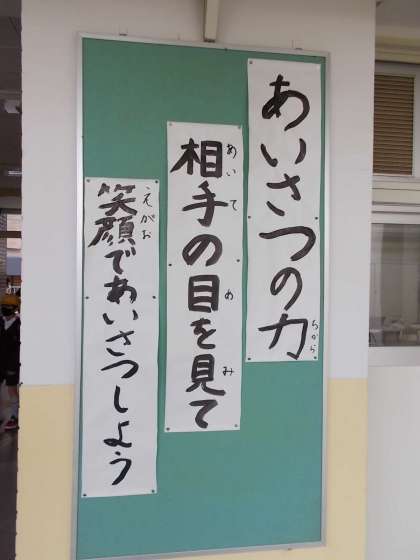 あいさつの力
ちから
相手の目を見て
あいて
め
み
笑顔であいさつしよう
えがお